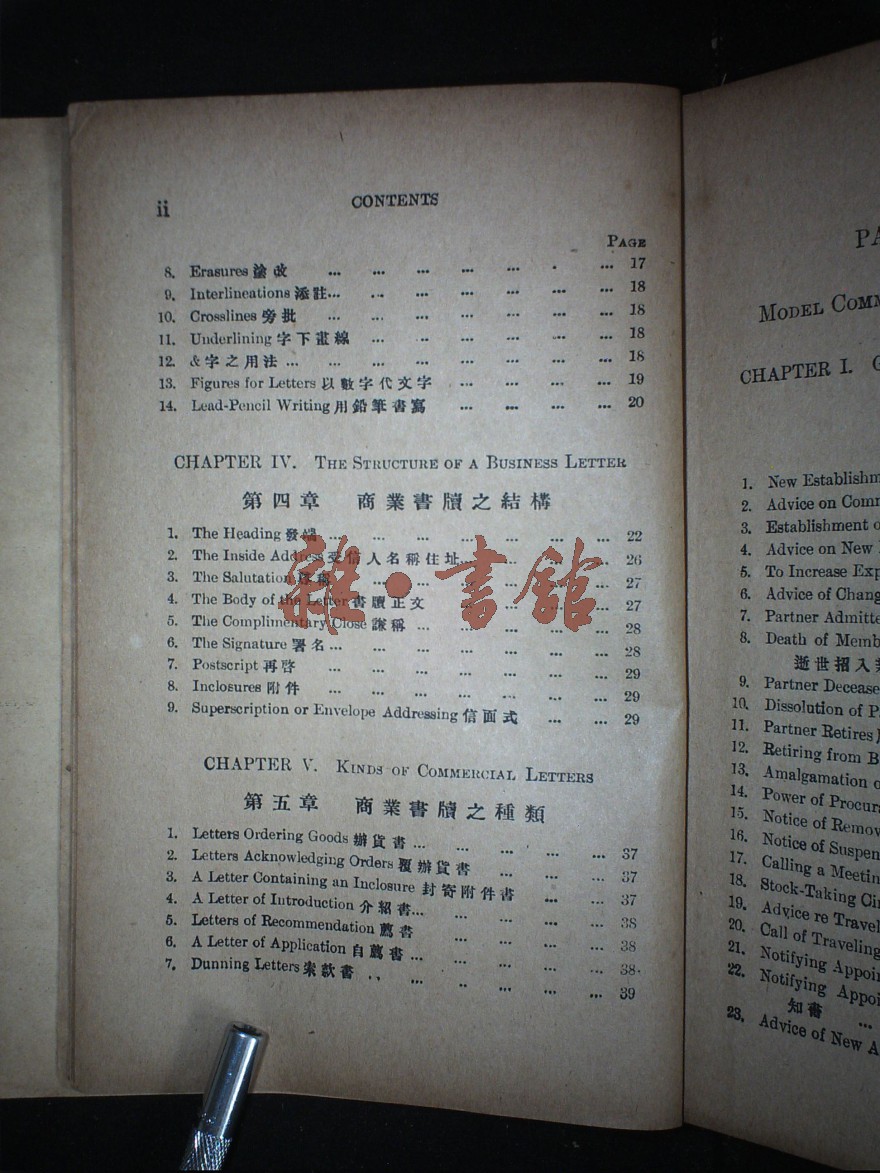 ii CONTENTS
PAGE
8. Erasures 塗改 ... ... ... ... ... . ... 17
9. Interlineations 添註... ... ... ... ... ... ... 18
10. Crosslines 旁批 ... ... ... ... ... ... 18
11. Underlining 字下畫線 ... ... ... ... ... ... 18
12. &字之用法 ... ... ... ... ... ... ... ... 18
13. Figures for Letters 以數字代文字 ... ... ... ... 19
14. Lead-Pencil Writing 用鉛筆書寫 ... ... ... ... 20
CHAPTER IV. THE STRUCTURE OF A BUSINESS LETTER
第四章 商業書牘之結構
1. The Heading 發端 ... ... ... ... ... ... ... 22
2. The Inside Address 受信人名稱住址... ... ... ... 26
3. The Salutation ... ... ... ... ... ... 27
4. The Body of the Letter 書牘正文 ... ... ... ... 27
5. The Complimentary Close 謙稱 ... ... ... ... ... 28
6. The Signature 署名... ... ... ... ... ... ... 28
7. Postscript 再啓 ... ... ... ... ... ... ... 29
8. Inclosures 附件 ... ... ... ... ... ... ... 29
9. Superscription or Envelope Addressing 信面式 ... ... 29
CHAPTER V. KINDS OF COMMERCIAL LETTERS
第五章 商業書牘之種類
1. Letters Ordering Goods 辦貨書... ... ... ... ... 37
2. Letters Acknowledging Orders 覆辦貨書 ... ... ... 37
3. A Letter Containing an Inclosure 封寄附件書 ... ... 37
4. A Letter of Introduction 介紹書... ... ... ... ... 38
5. Letters of Recommendation 薦書 ... ... ... ... 38
6. A Letter of Application 自薦書 ... ... ... ... ... 38
7. Dunning Letters 索款書 .. ... .. ... ... ... 39
雜·書館
PA
MODEL COMM
CHAPTER I. G
1. New Establishm
2. Advice on Comm
3. Establishment o
4. Advice on New
5. To Increase Exp
6. Advice of Chang
7. Partner Admitte
8. Death of Memb
逝世招入
9. Partner Decease
10. Dissolution of P
11. Partner Retires
12. Retiring from B
13. Amalgamation o
14. Power of Procura
15. Notice of Remov
16. Notice of Suspen
17. Calling a Meetin
18. Stock-Taking Cir
19. Advice re Travel
20. Call of Traveling
21. Notifying Appoin
22. Notifying Appoi
知書 ...
23. Advice of New A